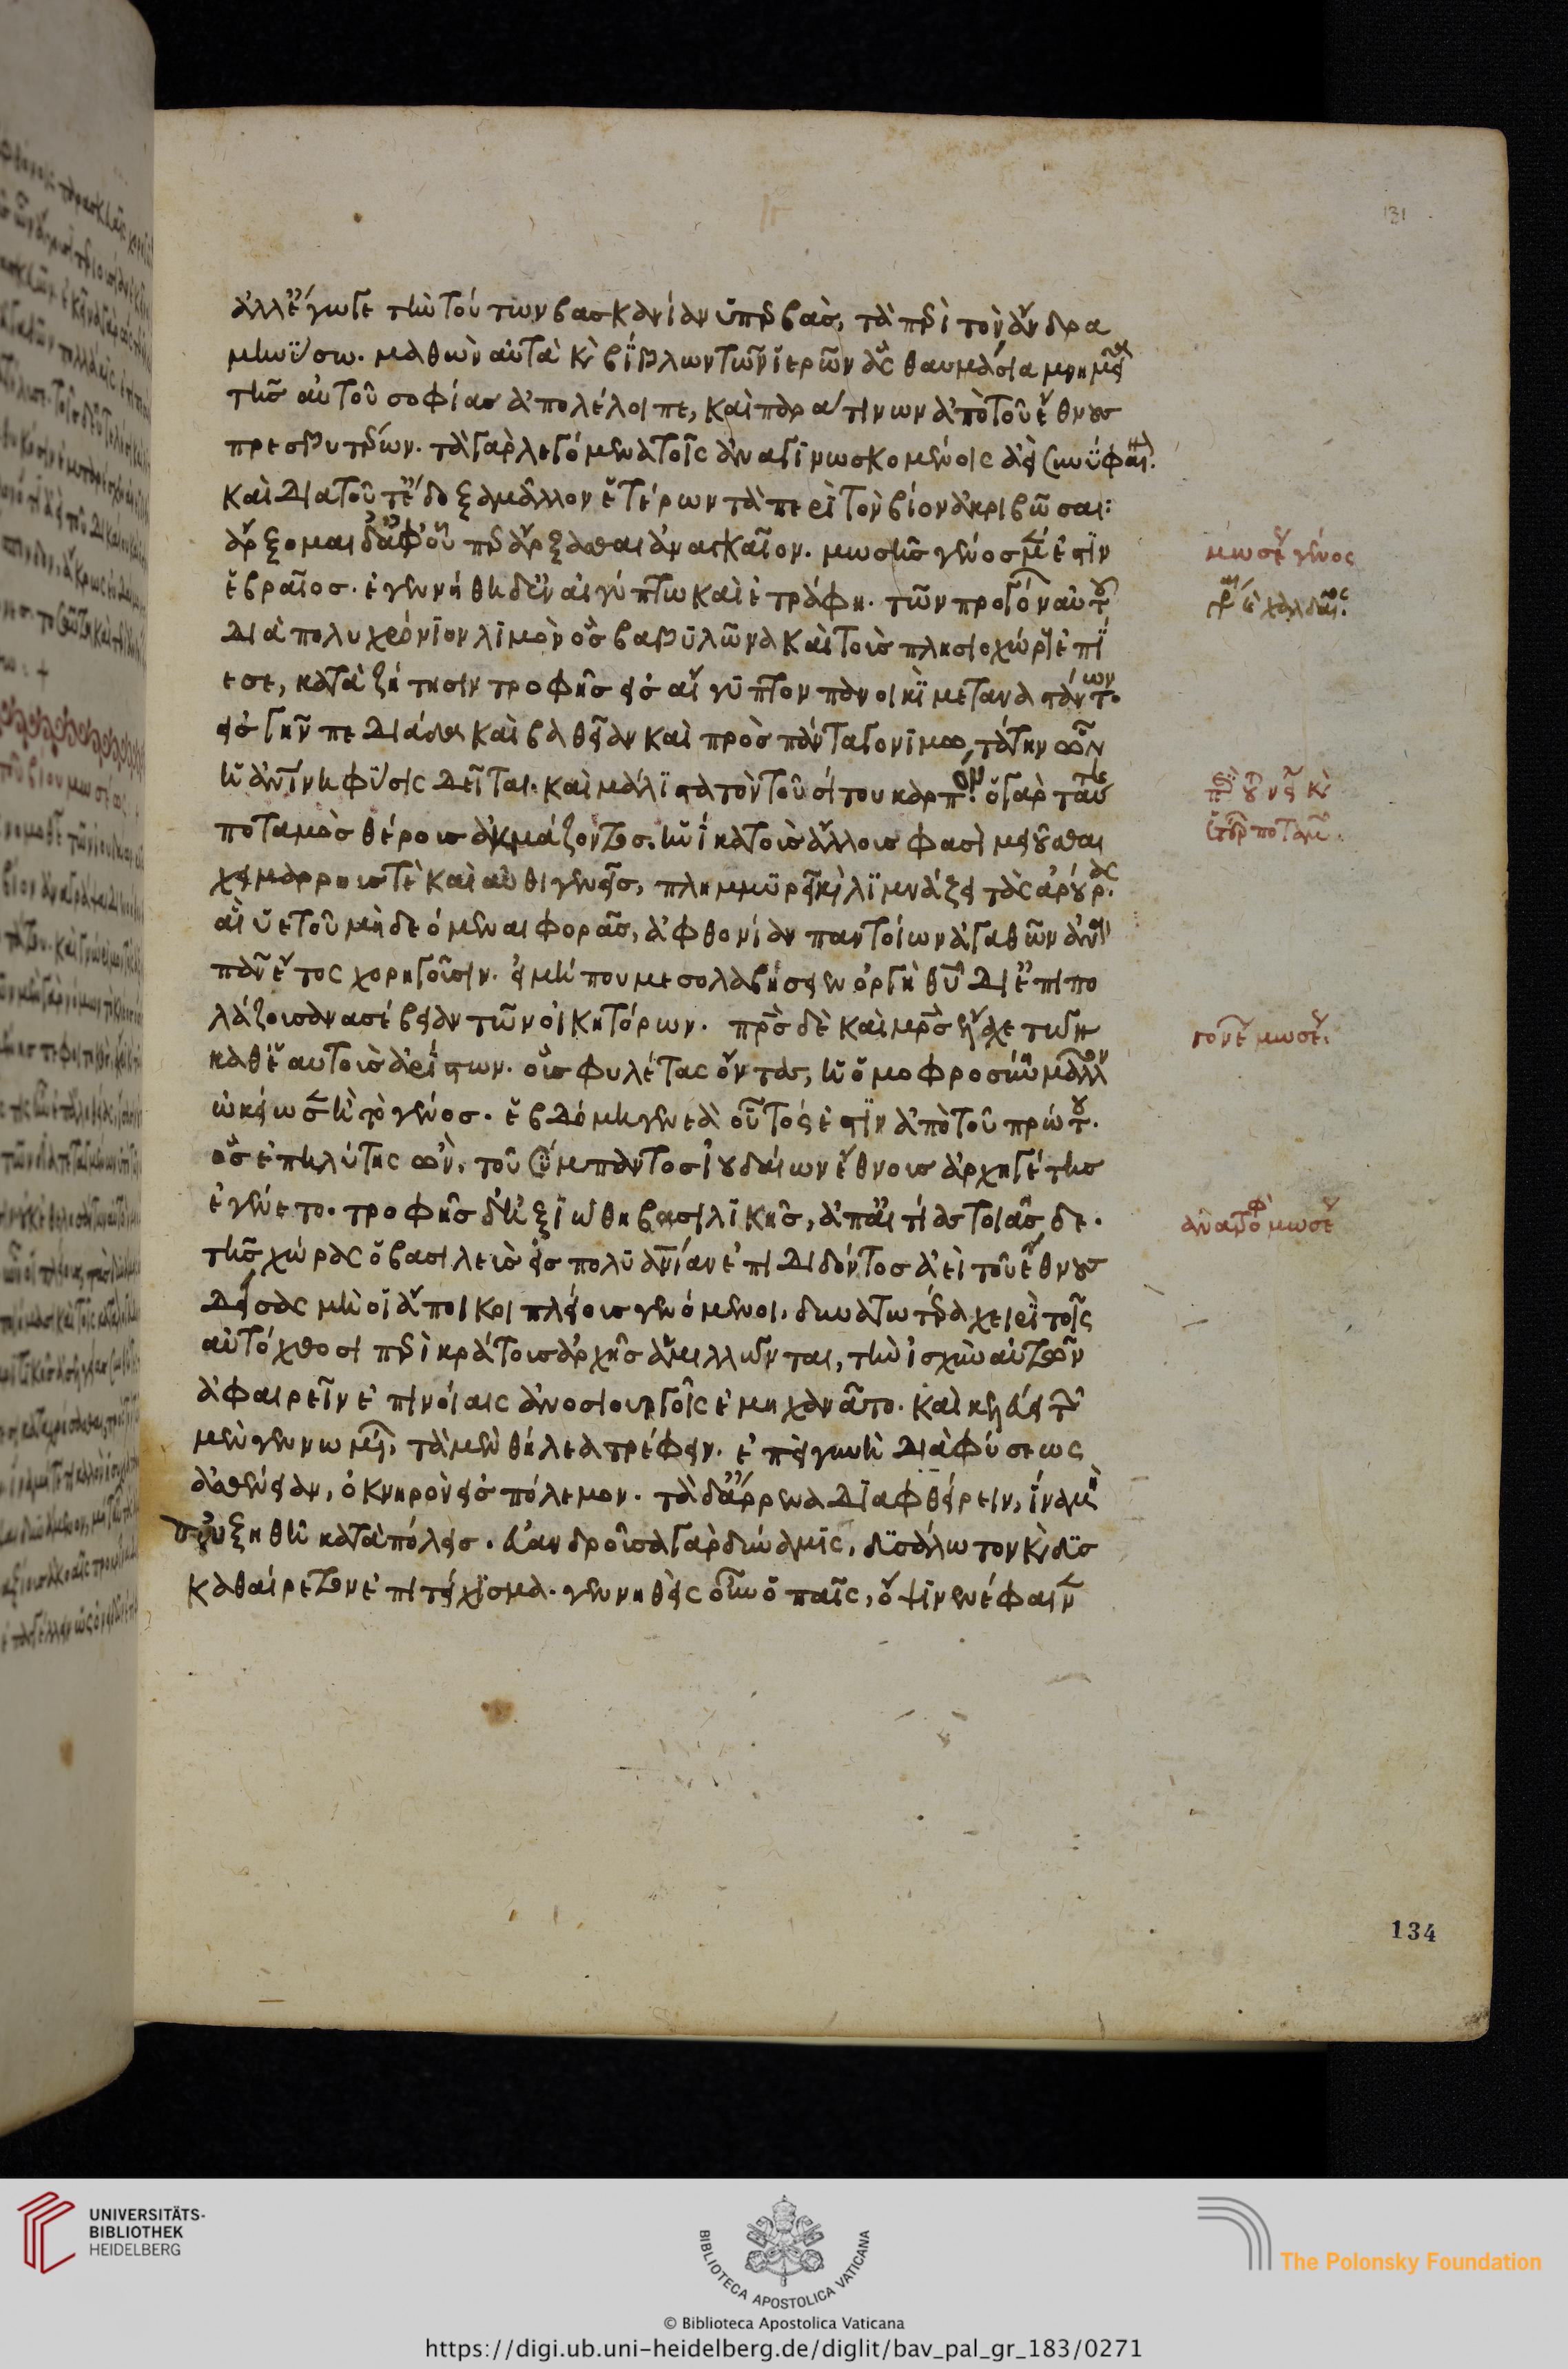 ἀλλ' ἔγωγε τὴν τούτων βασκανίαν ὑπερβὰς, τὰ περὶ τὸν ἄνδρα
μηνΰσω. μαθὼν αὐτὰ κἀκ βίβλων τῶν ἱερῶν ἃς θαυμάσια μνημεῖα
τῆς αὐτοῦ σοφίας ἀπολέλοιπε, καὶ παρά τινων ἀπὸ τοῦ ἔθνους
πρεσβυτέρων. τὰ γὰρ λεγόμενα τοῖς ἀναγινωσκομένοις ἀεὶ συνύφαινον.
καὶ διατοῦτ' ἔδοξα μᾶλλον ἑτέρων τὰ περὶ τὸν βίον ἀκριβῶσαι:
ἄρξομαι δ' ἀφ' οὗπερ ἄρξασθαι ἀναγκαῖον. μωσῆς γένος μέν ἐστιν
ἑβραῖος. ἐγεννήθη δ' ἐν αἰγύπτω καὶ ἐτράφη. τῶν προγόνων αὐτοῦ
διὰ πολυχρόνιον λιμὸν ὃς βαβυλῶνα καὶ τοὺς πλησιοχώρους ἐπί
εσε, κατὰ ζήτησιν τροφῆς εἰς αἴγυπτον πανοικὶ μεταναστάντων.
εἰς γῆν πεδιάδα καὶ βαθεῖαν καὶ πρὸς πάντα γονιμωτάτην ὧν
ἡ ἀνθρωπίνη φύσις δεῖται. καὶ μάλιστα τὸν τοῦ σίτου καρπόν. ὁ γὰρ ταύτης
ποταμὸς θέρους ἀκμάζοντος. ἡνίκα τοὺς ἄλλους φασὶ μειοῦσθαι
χειμάρρους τὲ καὶ αὐθιγενεῖς, πλημμυρεῖ καὶ λιμνάζει τὰς ἀρούρας.
αἳ ὑετοῦ μὴ δεόμεναι φορᾶς, ἀφθονίαν παντοίων ἀγαθῶν ἀνὰ
πᾶν ἔτος χορηγοῦσιν. εἰ μή που μεσολαβήσειεν ὀργὴ θυ δι' ἐπιπο
λάζουσαν ἀσέβειαν τῶν οἰκητόρων. πρς δὲ καὶ μρς ἔλαχε τῶν
καθ' ἑαυτοὺς ἀρίστων. οὓς φυλέτας ὄντας, ἡ ὁμοφροσύνη μᾶλλον
ὠκείωσεν ἢ τὸ γένος. ἑβδόμη γενεὰ οὗτός ἐστιν ἀπὸ τοῦ πρώτου.
ὃς ἐπηλύτης ὢν, τοῦ σύμπαντος ἰουδαίων ἔθνους ἀρχηγέτης
ἐγένετο. τροφῆς δ' ἠξιώθη βασιλικῆς, ἀπ' αἰτίας τοιᾶσδε.
τῆς χώρας ὁ βασιλεὺς εἰς πολυανίαν ἐπιδιδόντος ἀεὶ τοῦ ἔθνους
δείσας μὴ οἱ ἄποικοι πλείους γενόμενοι, δυνατωτέρα χειρὶ τοῖς
αὐτόχθοσι περὶ κράτους ἀρχῆς ἁμιλλῶνται, τὴν ἰσχὺν αὐτῶν
ἀφαιρεῖν ἐπινοίαις ἀνοσιουργοῖς ἐμηχανᾶτο. καὶ κελεύει τῶν
μὲν γεννωμένων, τὰ μὲν θήλεα τρέφειν. ἐπεὶ γυνὴ διὰ φύσεως
ἀσθένειαν, ὀκνηρὸν εἰς πόλεμον. τὰ δ' ἄρρενα διαφθείρειν, ἵνα μὴ
αὐξηθῆ κατὰ πόλεις. εὐανδροῦσα γὰρ δύναμις, δυσάλωτον καὶ δυσ
καθαίρετον ἐπιτείχισμα. γεννηθεὶς οὖν ὁ παῖς, ὄψιν ἐνέφαινεν
μωσέως γένος
131
134
γονεῖς μωσέως
ἀνατροφὴ μωσέως
UNIVERSITÄTS-
BIBLIOTHEK
HEIDELBERG
BIBLIOTECA APOSTOLICA VATICANA
The Polonsky Foundation
© Biblioteca Apostolica Vaticana
https://digi.ub.uni-heidelberg.de/diglit/bav_pal_gr_183/0271